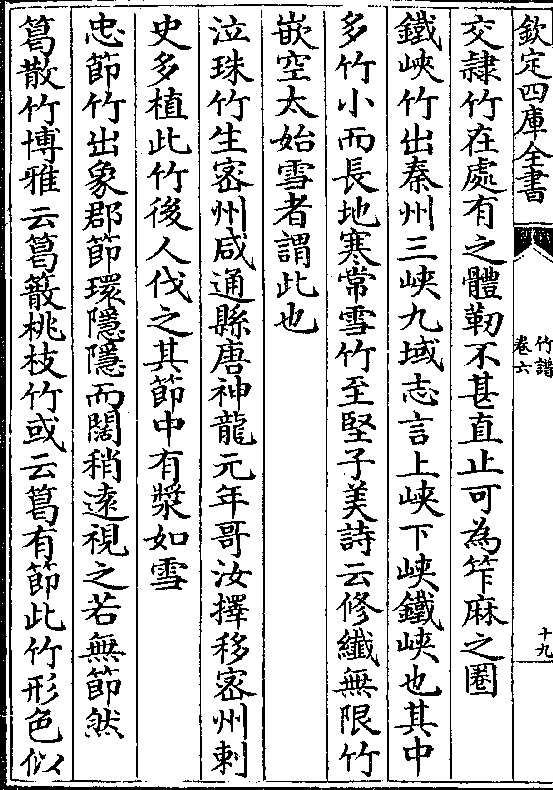 欽定四庫全書
竹譜
卷六
十九
交隷竹在處有之體韌不甚直止可為笮麻之圈
鐵峽竹出秦州三峽九域志言上峽下峽鐵峽也其中
多竹小而長地寒常雪竹至堅子美詩云修纖無限竹
嵌空太始雪者謂此也
泣珠竹生密州咸通縣唐神龍元年哥汝擇移密州刺
史多植此竹後人伐之其節中有漿如雪
忠節竹出象郡節環隱隱而闊稍遠視之若無節然
篙散竹博雅云篙簽桃枝竹或云篙有節此竹形色似